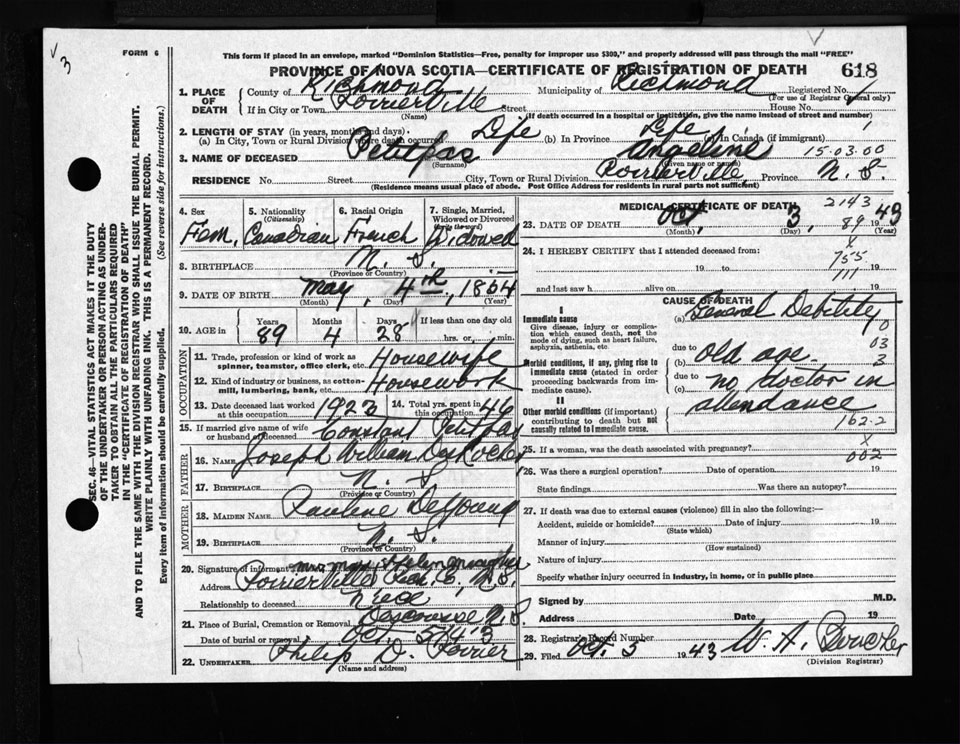 V
3
FORM 6
This form if placed in an envelope, marked "Dominion Statistics—Free, penalty for improper use $300," and properly addressed will pass through the mail "FREE"
PROVINCE OF NOVA SCOTIA—CERTIFICATE OF REGISTRATION OF DEATH 618
1. PLACE OF DEATH County of Richmond Municipality of Richmond Registered No. 1
(For use of Registrar General only)
If in City or Town Poirierville Street House No.
(Name) (If death occurred in a hospital or institution, give the name instead of street and number)
2. LENGTH OF STAY (in years, months and days).
(a) In City, Town or Rural Division where death occurred Life (b) In Province Life (c) In Canada (if immigrant) 1
3. NAME OF DECEASED Petitpas Angeline 15-03-00
(Surname) (Given name or names)
RESIDENCE No. Street City, Town or Rural Division Poirierville Province N. S.
(Residence means usual place of abode. Post Office Address for residents in rural parts not sufficient)
4. Sex Fem.
5. Nationality (Citizenship) Canadian
6. Racial Origin French
7. Single, Married, Widowed or Divorced (write the word) Widowed
8. BIRTHPLACE N. S.
(Province or Country)
9. DATE OF BIRTH May, 4th, 1854
(Month) (Day) (Year)
10. AGE in Years 89 Months 4 Days 28 If less than one day old hrs. or min.
OCCUPATION
11. Trade, profession or kind of work as spinner, teamster, office clerk, etc. Housewife
12. Kind of industry or business, as cotton-mill, lumbering, bank, etc. Housework
13. Date deceased last worked at this occupation 1923 14. Total yrs. spent in this occupation 46
15. If married give name of wife or husband of deceased Constant Petitpas
FATHER
16. NAME Joseph William DesRoches
17. BIRTHPLACE N. S.
(Province or Country)
MOTHER
18. MAIDEN NAME Pauline
19. BIRTHPLACE N. S.
(Province or Country)
20. Signature of informant Mrs
Address Poirierville, Rich. C., N. S.
Relationship to deceased Niece
21. Place of Burial, Cremation or Removal Descousse N. S.
Date of burial or removal Oct. 5/43
22. UNDERTAKER Philip D. Poirier
(Name and address)
MEDICAL CERTIFICATE OF DEATH 2143
23. DATE OF DEATH Oct, 3 89 1943
(Month), (Day), (Year)
24. I HEREBY CERTIFY that I attended deceased from: X
19 to 755 19
and last saw h alive on 111 19
CAUSE OF DEATH
I
Immediate cause
Give disease, injury or complication which caused death, not the mode of dying, such as heart failure, asphyxia, asthenia, etc.
(a) General Debility 0
due to 03
Morbid conditions, if any, giving rise to immediate cause (stated in order proceeding backwards from immediate cause).
(b) Old age. 3
due to
(c) no doctor in
II
Other morbid conditions (if important) contributing to death but not causally related to immediate cause.
attendance
162-2
25. If a woman, was the death associated with pregnancy? X
002
26. Was there a surgical operation? Date of operation 19
State findings Was there an autopsy?
27. If death was due to external causes (violence) fill in also the following:—
Accident, suicide or homicide? Date of injury 19
(State which)
Manner of injury
(How sustained)
Nature of injury
Specify whether injury occurred in industry, in home, or in public place
Signed by M.D.
Address Date 19
28. Registrar's Record Number
29. Filed Oct. 5 1943 W. A.
(Division Registrar)
SEC. 46—VITAL STATISTICS ACT MAKES IT THE DUTY
OF THE UNDERTAKER OR PERSON ACTING AS UNDER-
TAKER TO OBTAIN ALL THE PARTICULARS REQUIRED
IN THE "CERTIFICATE OF REGISTRATION OF DEATH"
AND TO FILE THE SAME WITH THE DIVISION REGISTRAR WHO SHALL ISSUE THE BURIAL PERMIT.
WRITE PLAINLY WITH UNFADING INK. THIS IS A PERMANENT RECORD.
Every item of information should be carefully supplied. (See reverse side for instructions.)